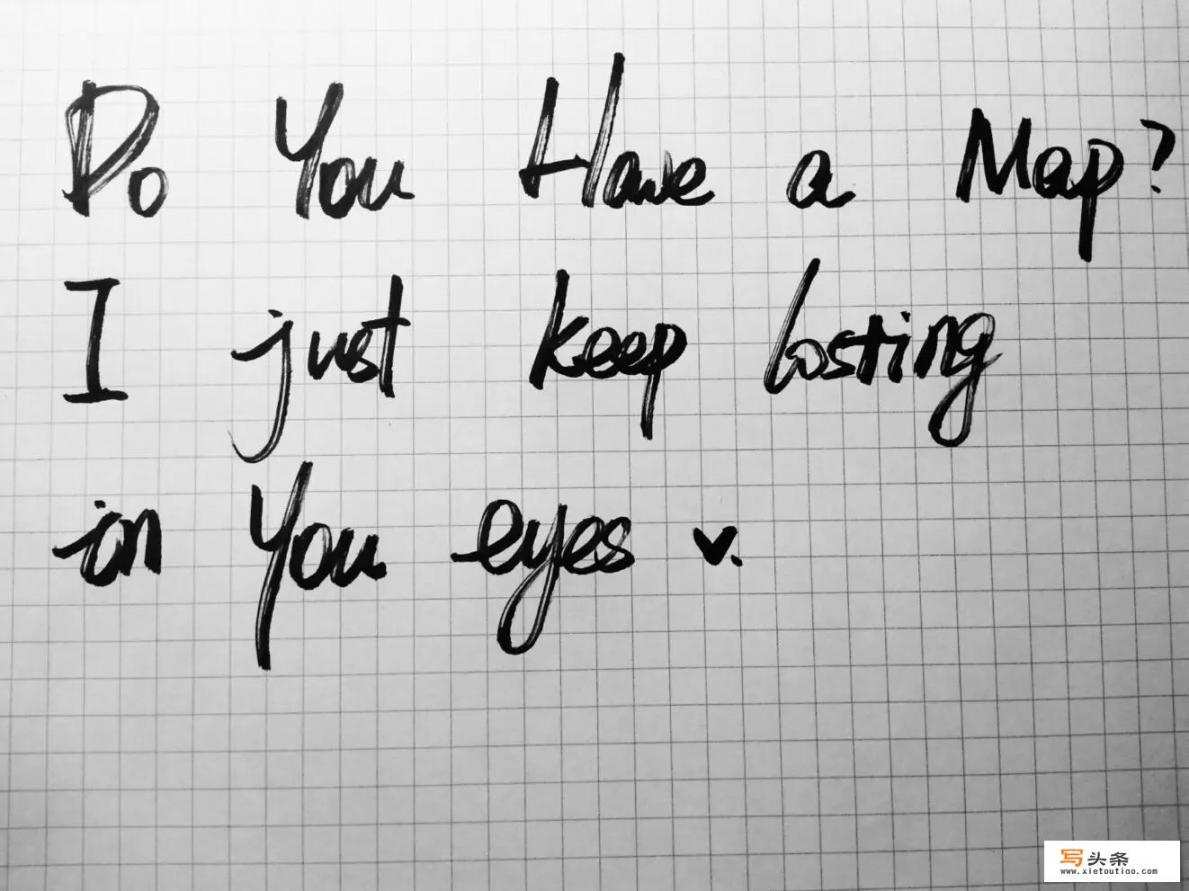 Do You Have a Map?
I just keep losting
in you eyes ♥.
写头条
www.xietoutiao.com